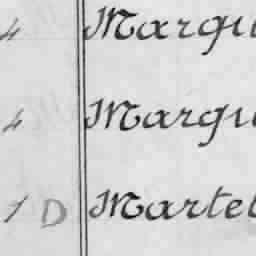 4 Margu
4 Margu
1 D Martel